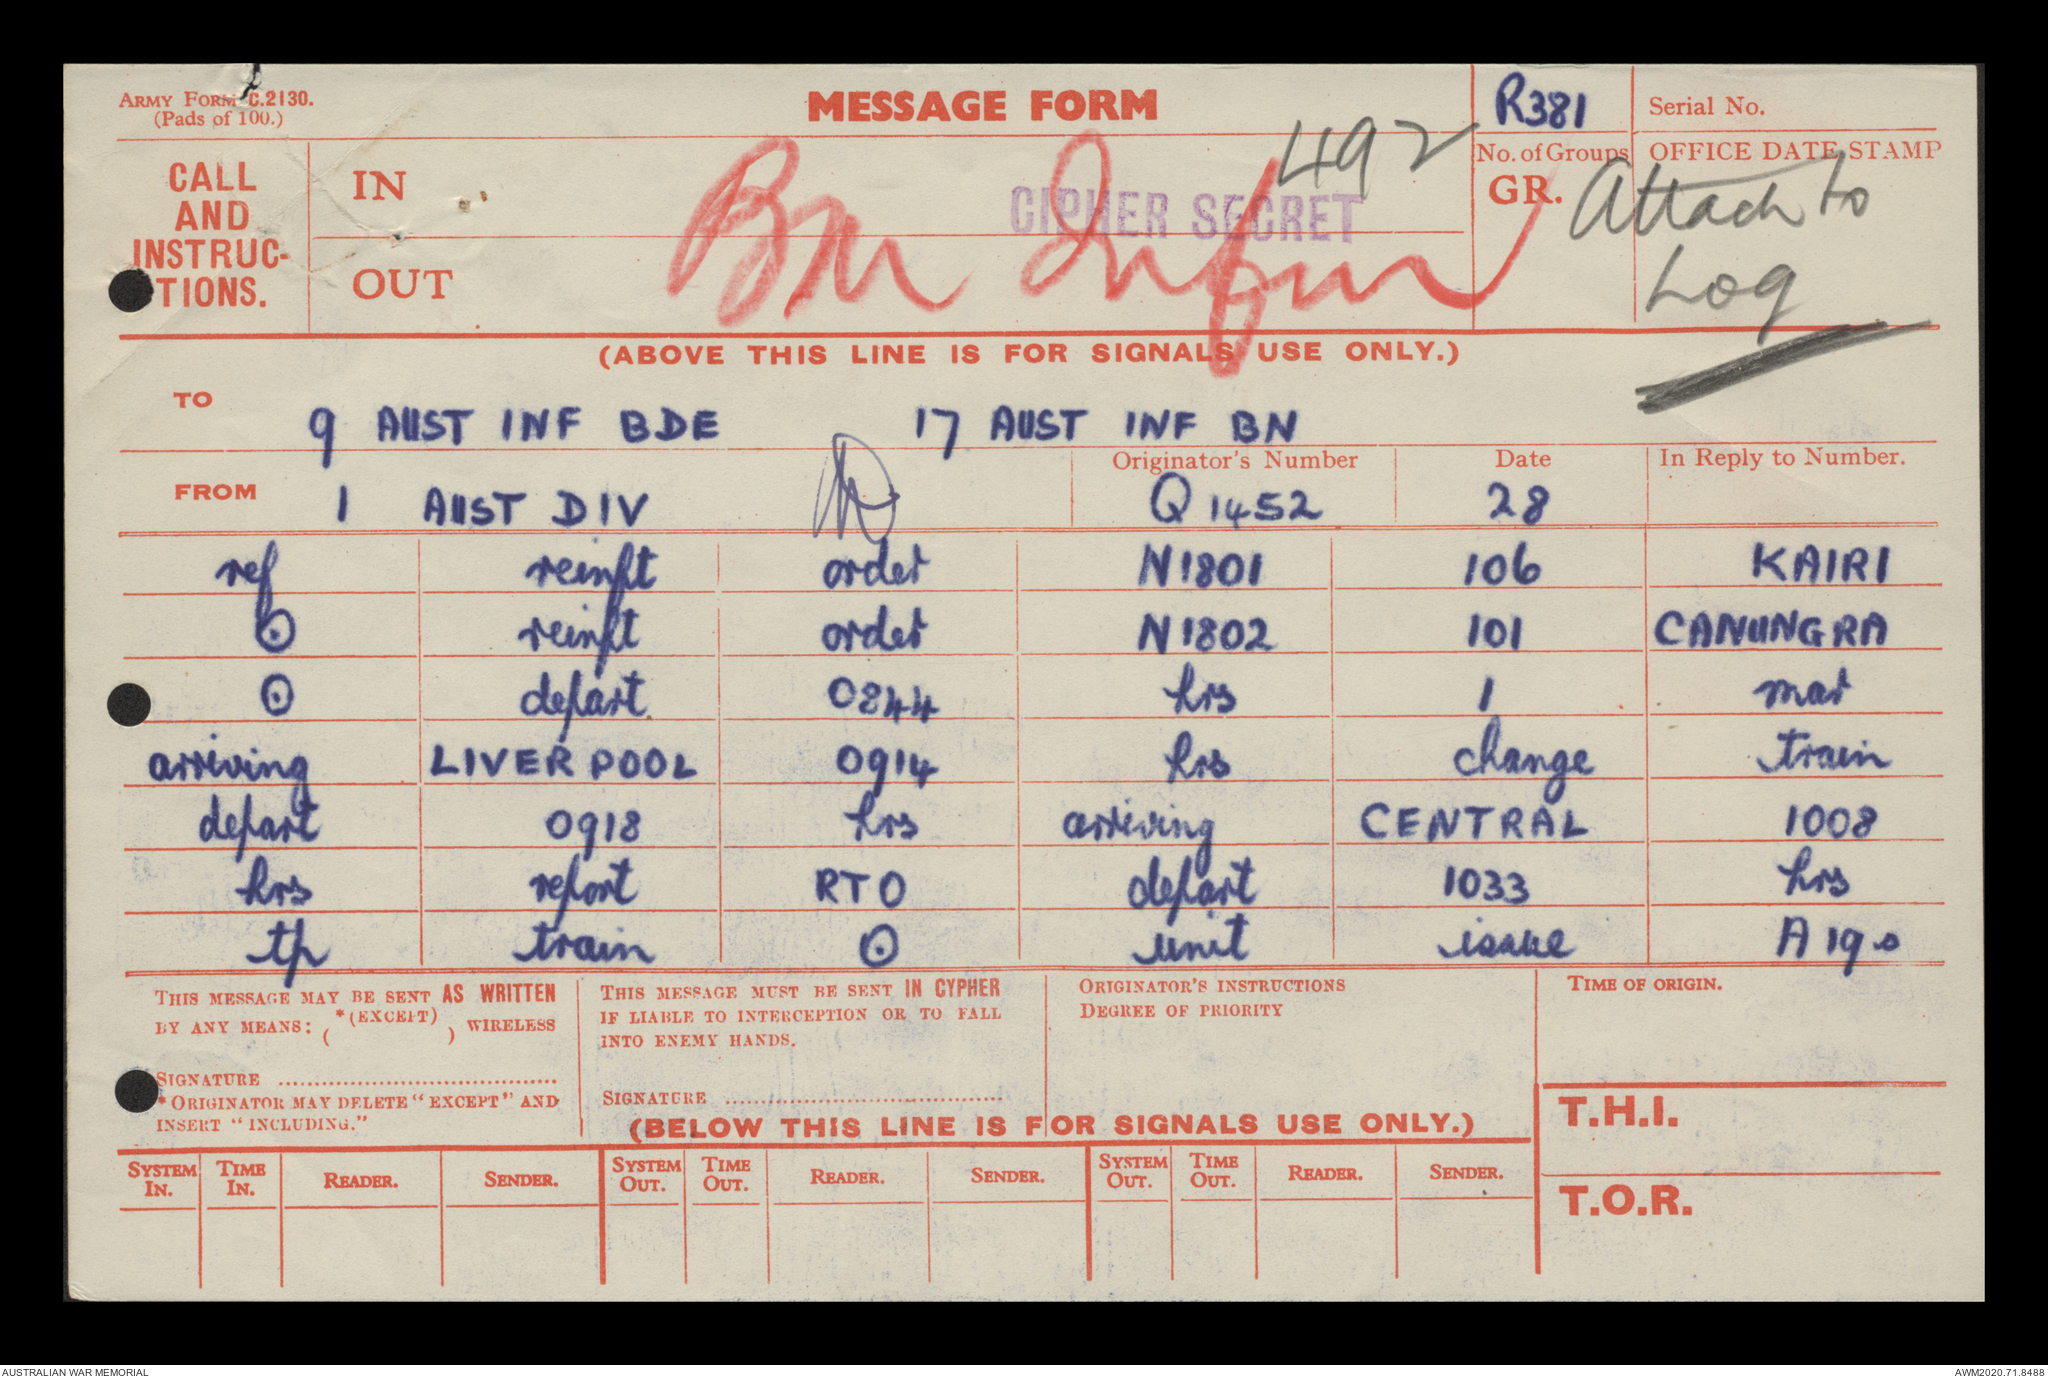 ARMY FORM C.2130.
(Pads of 100.)
MESSAGE FORM
R381
Serial No.
CALL AND INSTRUC-TIONS.
IN
OUT
CIPHER SECRET
492
No. of Groups
GR.
OFFICE DATE STAMP
Attach to
Log
(ABOVE THIS LINE IS FOR SIGNALS USE ONLY.)
TO
9 AUST INF BDE 17 AUST INF BN
FROM
1 AUST DIV
Originator's Number
Q1452
Date
28
In Reply to Number.
ref reinft order N1801 106 KAIRI
⊙ reinft order N1802 101 CANUNGRA
⊙ depart 0844 hrs 1 mar
arriving LIVERPOOL 0914 hrs change train
depart 0918 hrs arriving CENTRAL 1008
hrs report RTO depart 1033 hrs
tp train ⊙ unit issue A19s
THIS MESSAGE MAY BE SENT AS WRITTEN
BY ANY MEANS: ( *(EXCEPT) ) WIRELESS
SIGNATURE
*ORIGINATOR MAY DELETE "EXCEPT" AND
INSERT "INCLUDING."
THIS MESSAGE MUST BE SENT IN CYPHER
IF LIABLE TO INTERCEPTION OR TO FALL
INTO ENEMY HANDS.
SIGNATURE
ORIGINATOR'S INSTRUCTIONS
DEGREE OF PRIORITY
TIME OF ORIGIN.
(BELOW THIS LINE IS FOR SIGNALS USE ONLY.)
T.H.I.
SYSTEM IN. TIME IN. READER. SENDER. SYSTEM OUT. TIME OUT. READER. SENDER. SYSTEM OUT. TIME OUT. READER. SENDER.
T.O.R.
AUSTRALIAN WAR MEMORIAL
AWM2020.71.8488